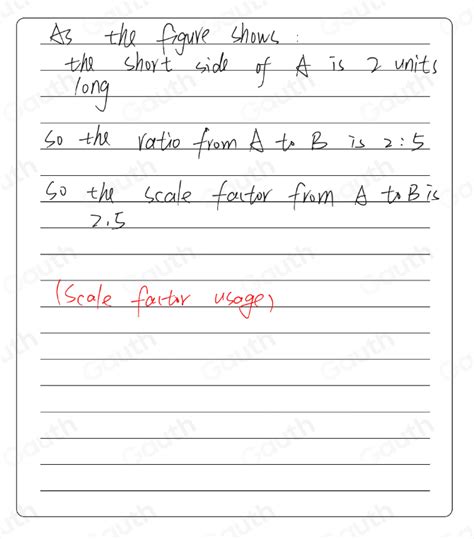 As the figure shows :
the short side of A is 2 units
long
So the ratio from A to B is 2:5
So the scale factor from A to B is
2.5
(Scale factor usage)